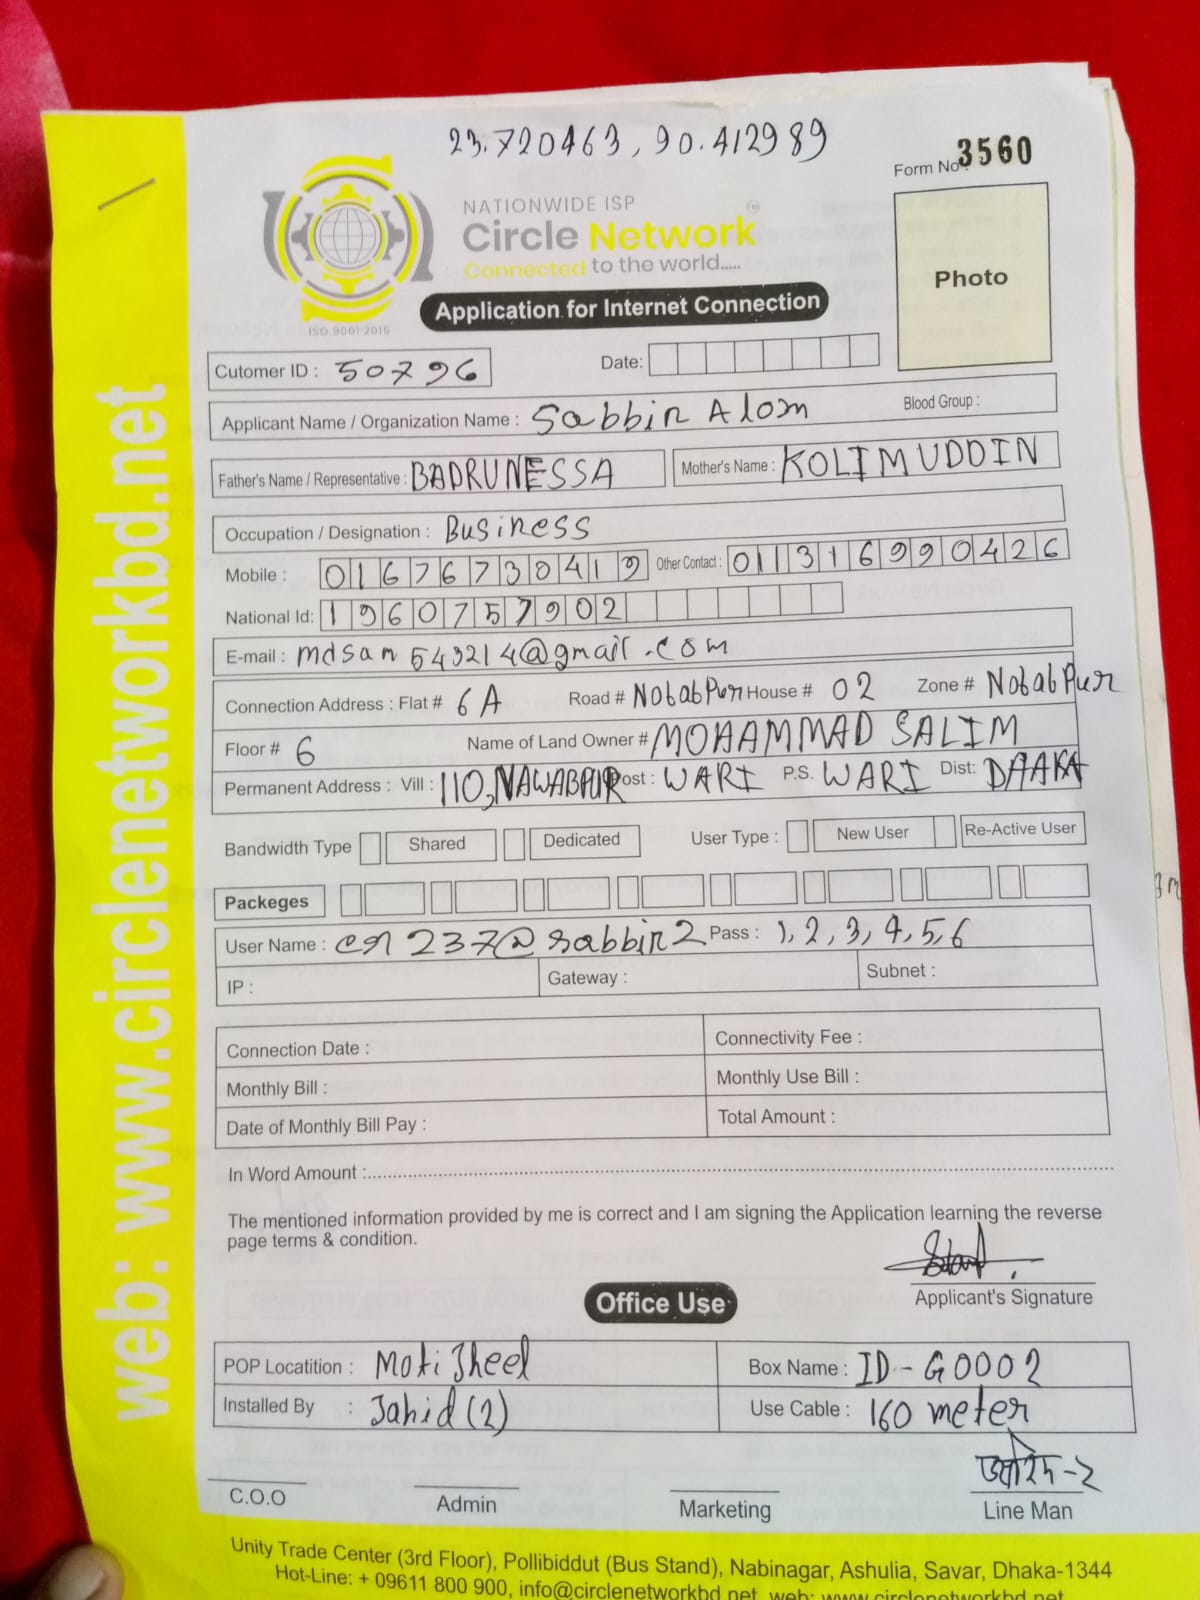 23.720463, 90.412989
Form No. 3560
NATIONWIDE ISP
Circle Network
Connected to the world.....
ISO 9001:2015
Application for Internet Connection
Photo
Cutomer ID : 50796
Date:
Applicant Name / Organization Name : Sabbir Alom
Blood Group :
Father's Name / Representative : BADRUNESSA
Mother's Name : KOLIMUDDIN
Occupation / Designation : Business
Mobile : 01676730419
Other Contact : 011316990426
National Id: 1960757902
E-mail : mdsan543214@gmail.com
Connection Address : Flat # 6A Road # Nobabpur House # 02 Zone # Nobabpur
Floor # 6 Name of Land Owner # MOHAMMAD SALIM
Permanent Address : Vill : 110, NAWABPUR Post : WARI P.S. WARI Dist: DHAKA
Bandwidth Type Shared Dedicated User Type : New User Re-Active User
Packeges
User Name : cn237@sabbir2 Pass : 1,2,3,4,5,6
IP : Gateway : Subnet :
Connection Date : Connectivity Fee :
Monthly Bill : Monthly Use Bill :
Date of Monthly Bill Pay : Total Amount :
In Word Amount :
The mentioned information provided by me is correct and I am signing the Application learning the reverse
page terms & condition.
Applicant's Signature
Office Use
POP Locatition : Moti Jheel Box Name : ID-G0002
Installed By : Jahid (2) Use Cable : 160 meter
C.O.O
Admin
Marketing
Line Man
Unity Trade Center (3rd Floor), Pollibiddut (Bus Stand), Nabinagar, Ashulia, Savar, Dhaka-1344
Hot-Line: + 09611 800 900, info@circlenetworkbd.net, web: www.circlenetworkbd.net
web: www.circlenetworkbd.net